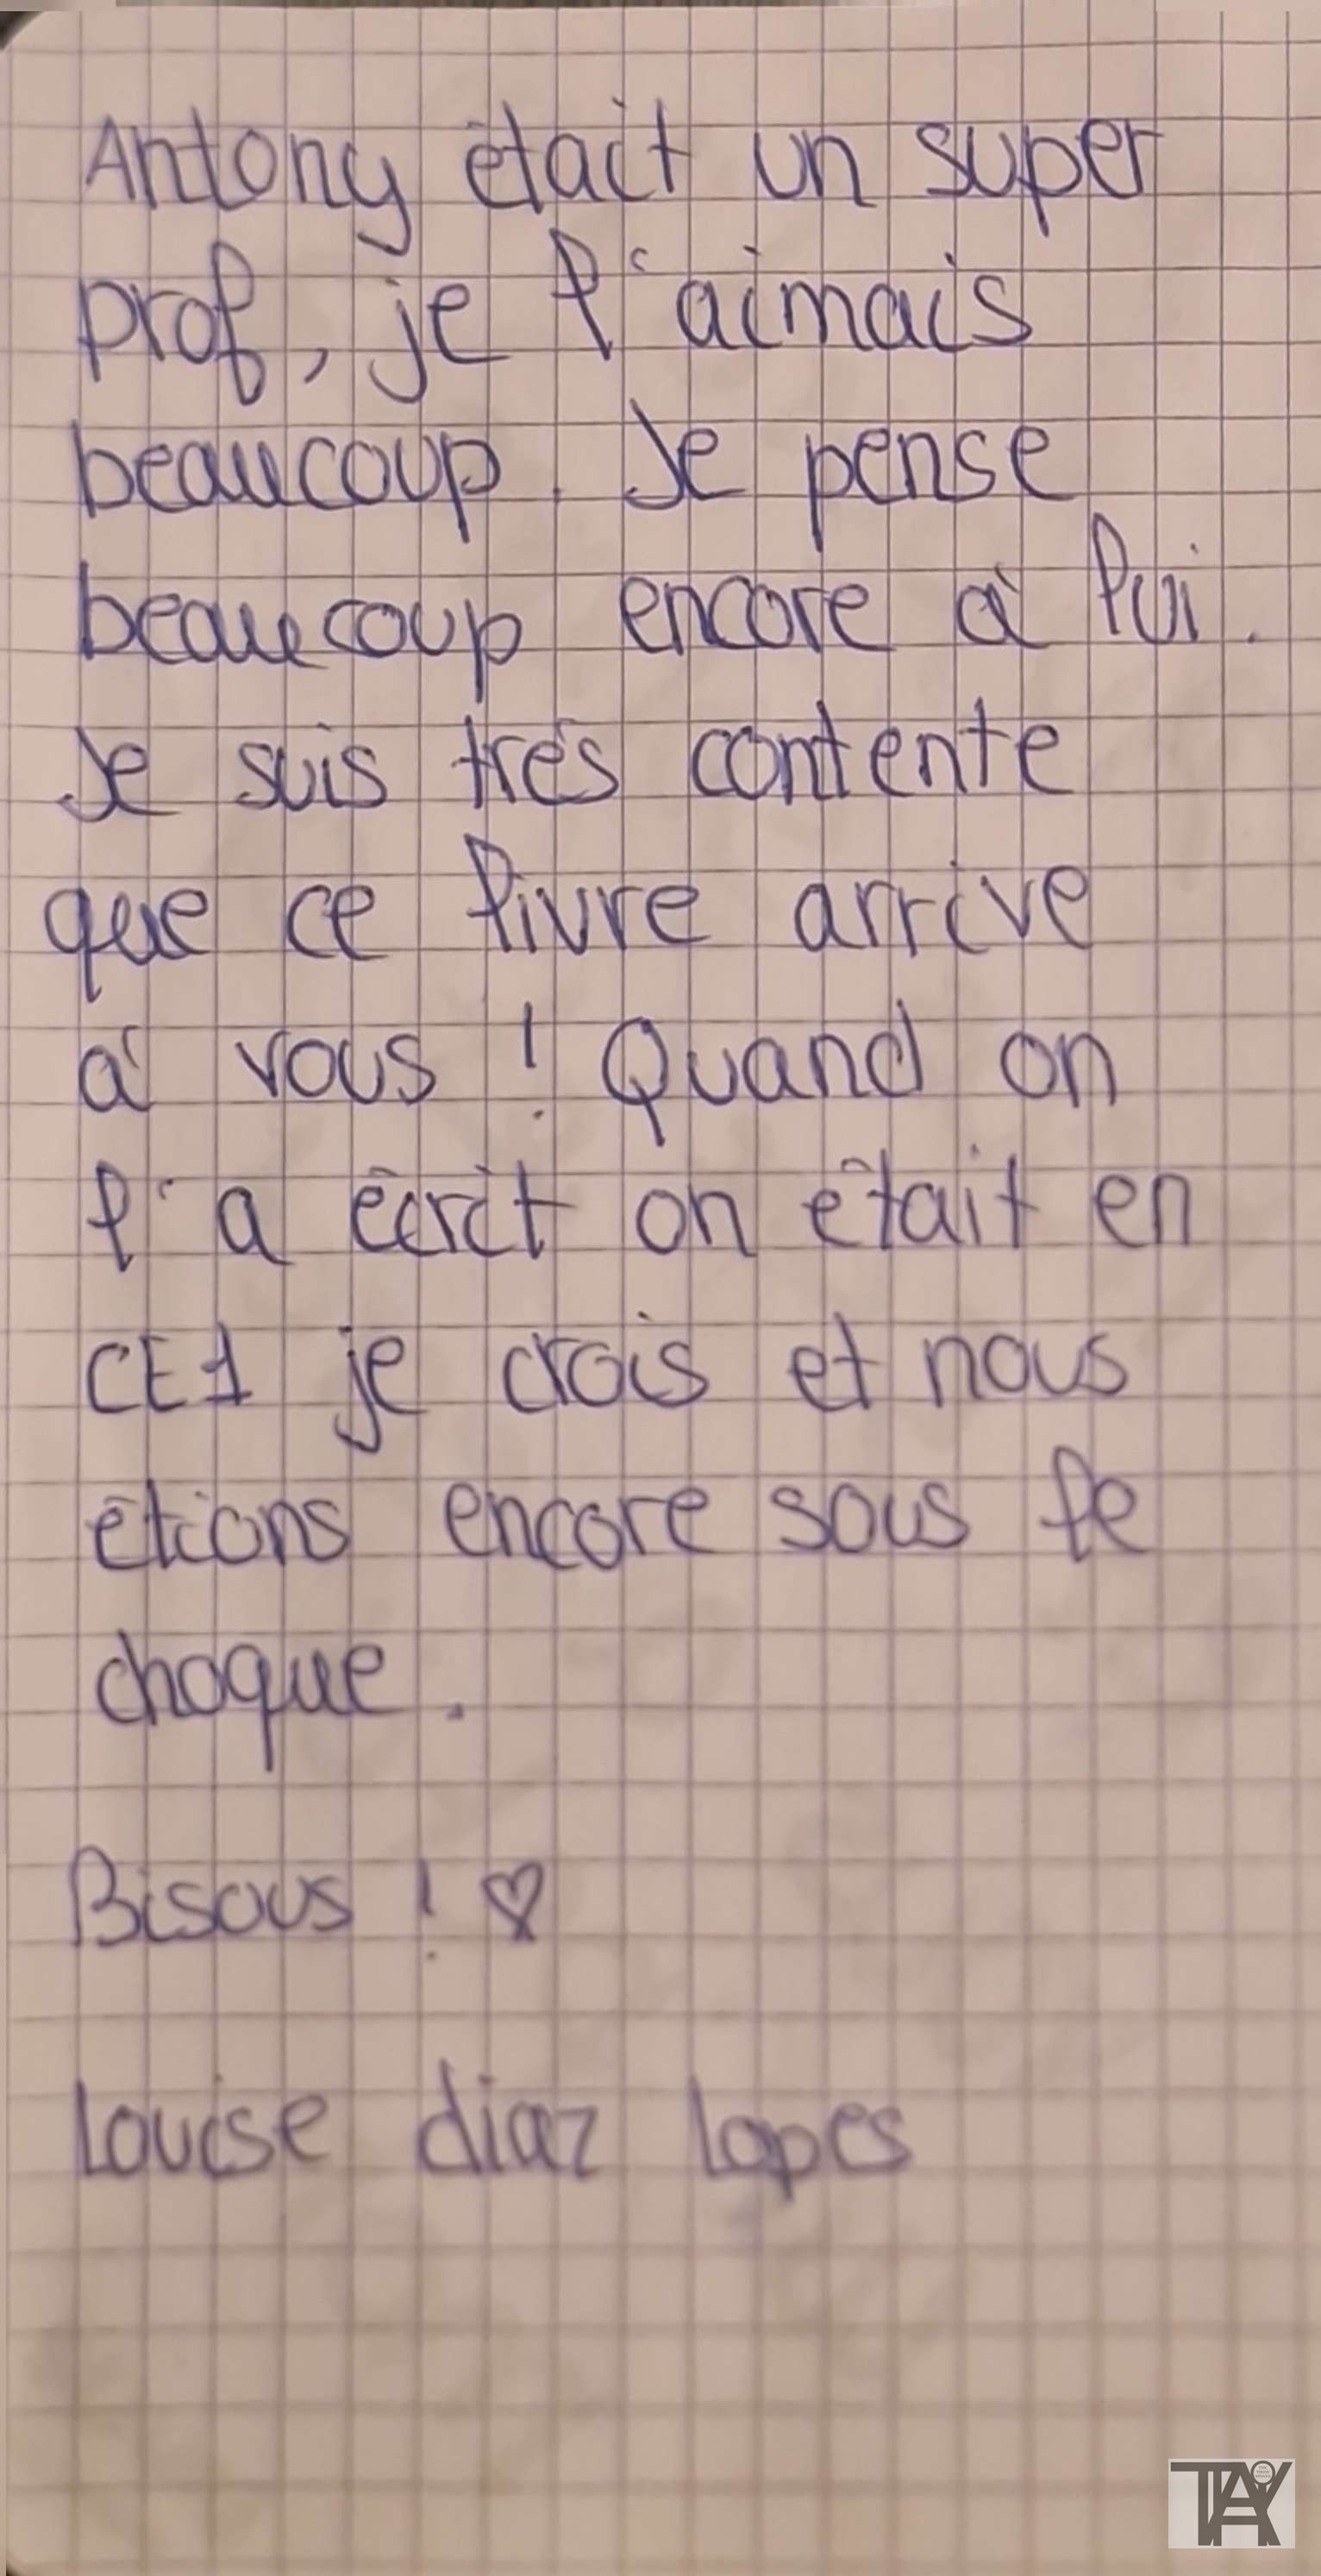 Antony était un super
prof, je l'aimais
beaucoup. Je pense
beaucoup encore à lui.
Je suis très contente
que ce livre arrive
à vous ! Quand on
l'a écrit on était en
CE1 je crois et nous
étions encore sous le
choque.
Bisous ! ♡
Louise diaz lopes
TAY